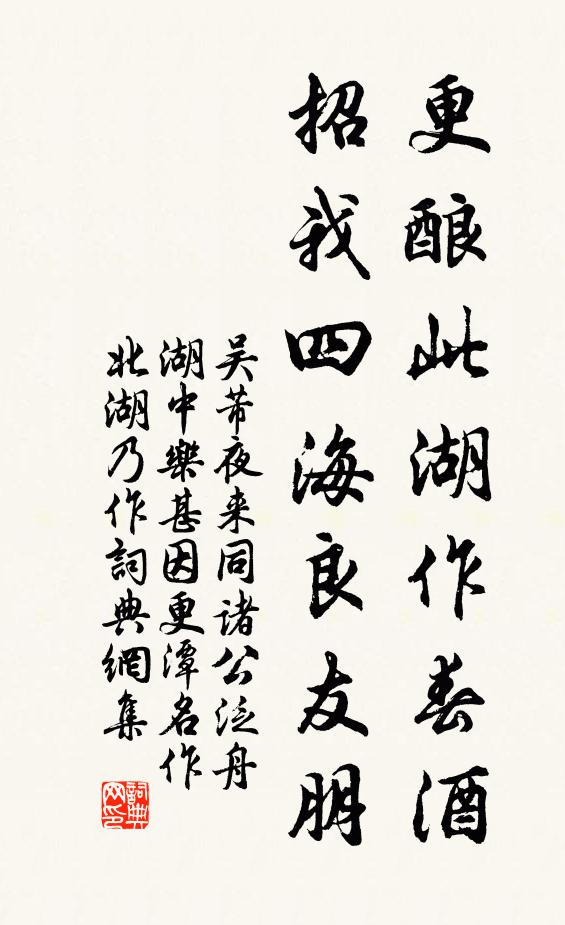 更酿此湖作春酒
招我四海良友朋
吴芾夜来同诸公泛舟
湖中樂甚因更潭名作
北湖乃作詞典網集
詞典
网印